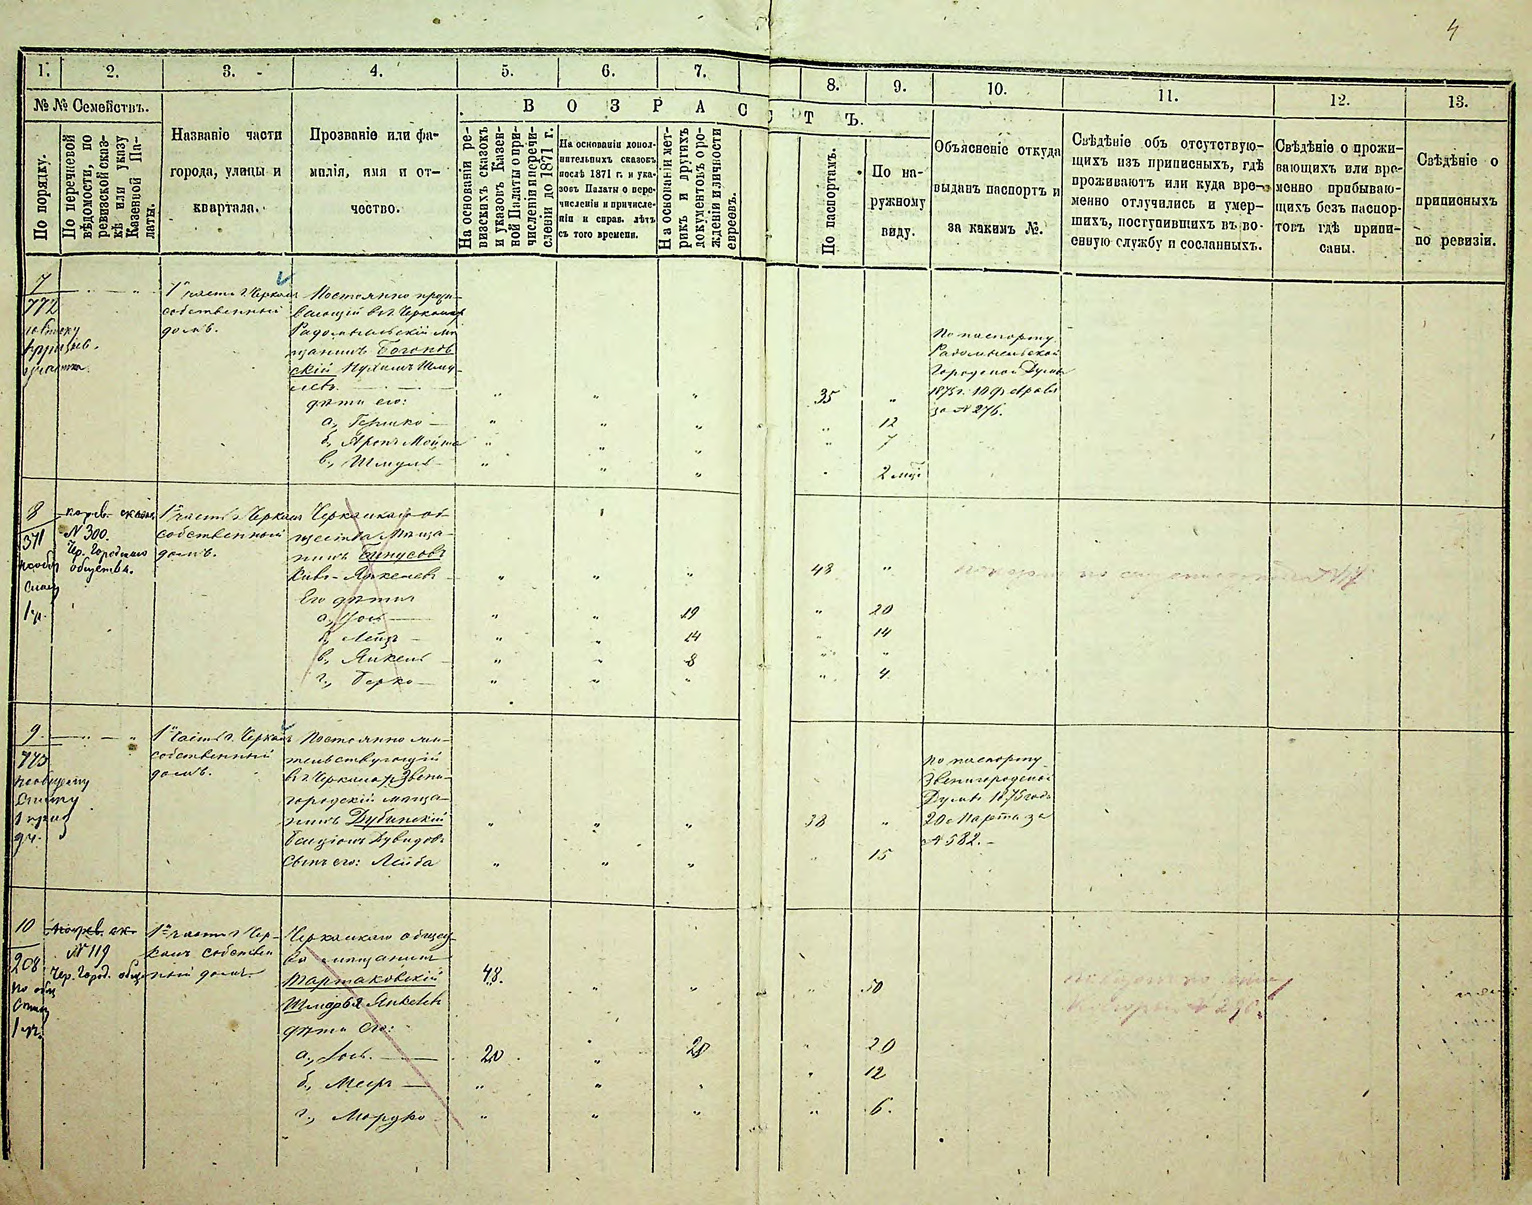 4
1. 2. 3. 4. 5. 6. 7. 8. 9. 10. 11. 12. 13.
№ № Семействъ.
ВОЗРАСТЪ.
По порядку.
По перечневой
вѣдомости, по
ревизской сказ-
кѣ или указу
Казенной Па-
латы.
Названіе части
города, улицы и
квартала.
Прозваніе или фа-
милія, имя и от-
чество.
На основаніи ре-
визскихъ сказокъ
и указовъ Казен-
ной Палаты о при-
численіи и перечи-
сленіи до 1871 г.
На основаніи допол-
нительныхъ сказокъ
послѣ 1871 г. и ука-
зовъ Палаты о пере-
численіи и причисле-
ніи и справ. лѣтъ
съ того времени.
На основаніи мет-
рикъ и другихъ
документовъ о ро-
жденіи и личности
евреевъ.
По паспортамъ.
По на-
ружному
виду.
Объясненіе откуда
выданъ паспортъ и
за какимъ №.
Свѣдѣніе объ отсутствую-
щихъ изъ приписныхъ, гдѣ
проживаютъ или куда вре-
менно отлучились и умер-
шихъ, поступившихъ въ во-
енную службу и сосланныхъ.
Свѣдѣніе о прожи-
вающихъ или вре-
менно прибываю-
щихъ безъ паспор-
товъ гдѣ припи-
саны.
Свѣдѣніе о
приписныхъ
по ревизіи.
7
772
участка.
1я часть г. Черкасъ
собственный
домъ.
Постоянно прожи-
вающій въ г. Черкасахъ
Радомысльскій мѣ
щанинъ Богопов
скій Нухимъ Шму-
левъ
35 "
дѣти его:
а., Гершко 12
б., Аронъ Мойша 7
в., Шмуль 2 мѣс
По паспорту
Радомысльской
Городской Думы
1875 г. 10 февраля
за № 276.
8
371
1 ч.
по рев. сказк
№ 300.
Чер. Городскаго
общества.
1я часть г. Черкасъ
собственный
домъ.
Черкаскаго об
щества мѣща-
нинъ Бинусовъ
Кивъ-Янкелевъ
48 "
Его дѣти
а., Іось 19 20
б., Лейзр 14 14
в., Янкель 8 "
г., Берко 4
9
773
1я часть г. Черкасъ
собственный
домъ.
Постоянно жи-
тельствующій
въ г. Черкасахъ Звени-
городскій мѣща-
нинъ Дубинскій
Бенціонъ Дувидовъ
38 "
Сынъ его: Лейба 15
по паспорту
Звенигородской
Думы 1875 года
20 Марта за
№ 582.
10
208
по общ
списку
1 ч.
по рев. ск.
№ 119
Чер. Город. обще
1я часть г. Чер-
касъ собствен
ный домъ
Черкаскаго общес
ва мѣщанинъ
Тартаковскій
Шмарья Янкелев
48. 50
дѣти его:
а., Іось. 20 20 20
б., Мееръ 12
г., Мордко 6.